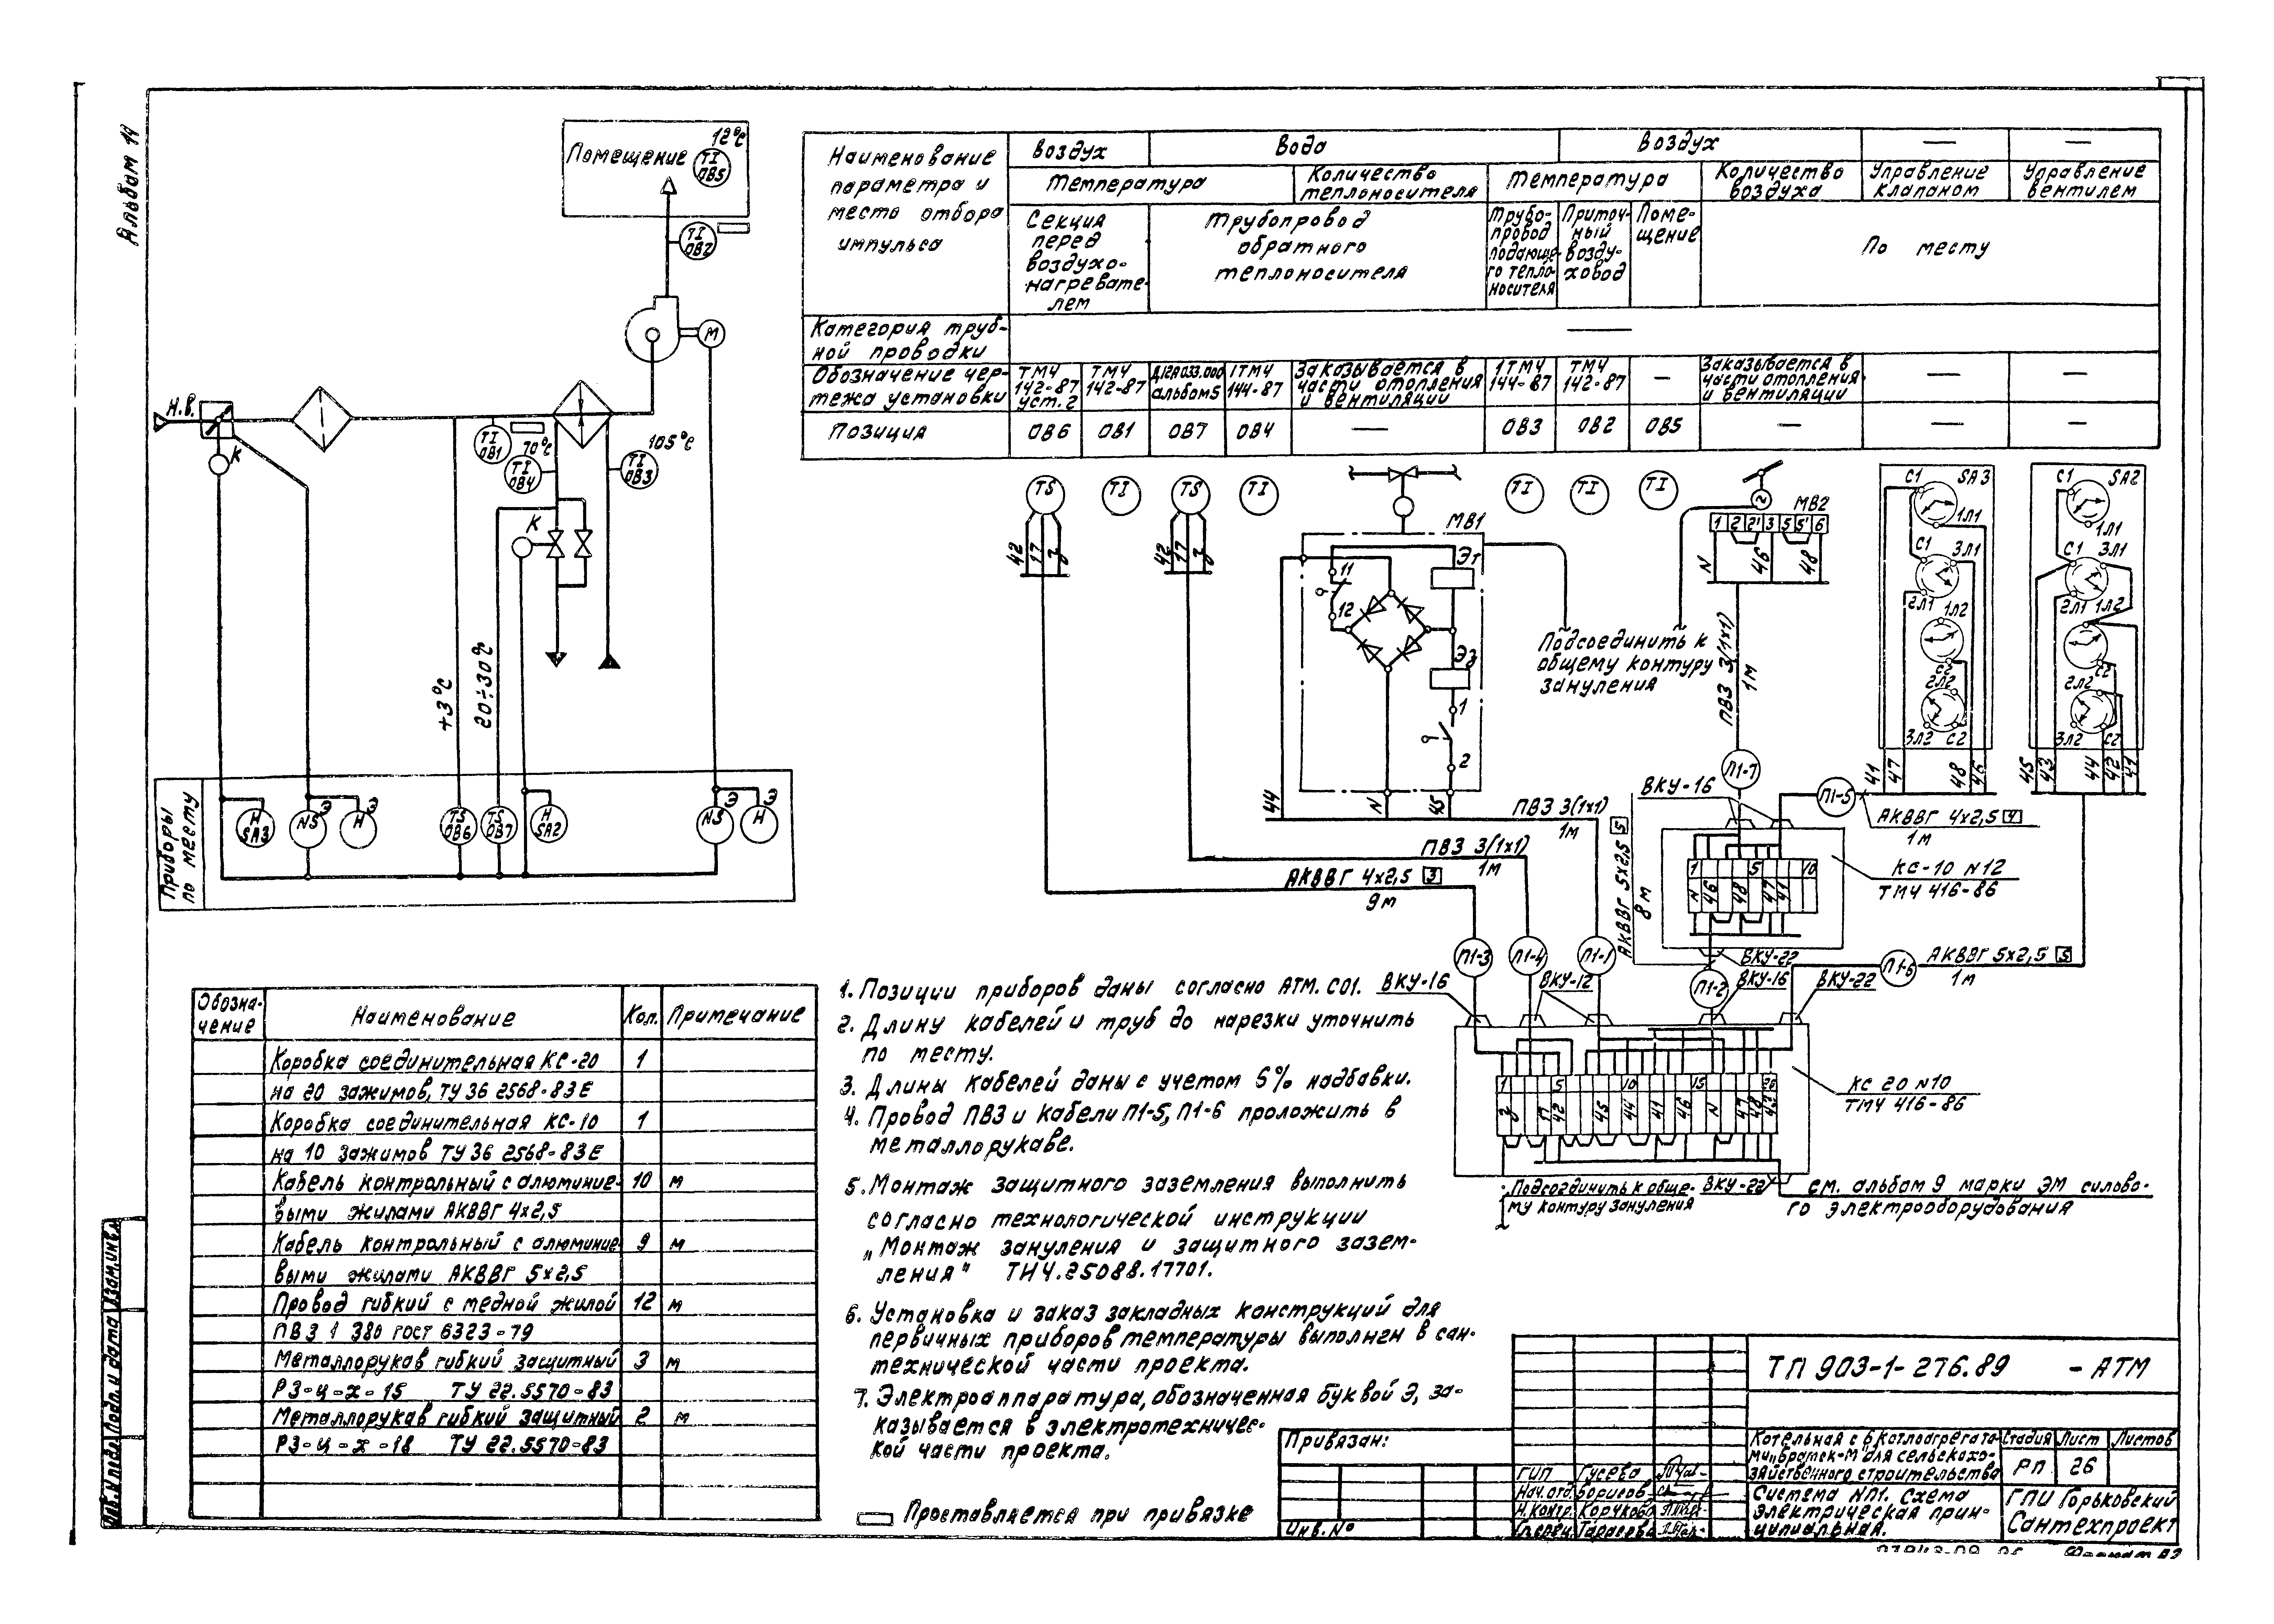 Альбом 14
Помещение
12°С
TI
ОВ5
TI
ОВ2
М
Н.В.
К
TI
ОВ1
70°С
TI
ОВ4
105°С
TI
ОВ3
К
+3°С
20÷30°С
Приборы
по месту
Н
SA3
NS
Э
Н
Э
TS
ОВ6
TS
ОВ7
Н
SA2
NS
Э
Н
Э
Наименование
параметра и
место отбора
импульса
воздух
Вода
Воздух
—
—
Температура
Количество
теплоносителя
Температура
Количество
воздуха
Управление
клапаном
Управление
вентилем
Секция
перед
воздухо-
нагревате-
лем
Трубопровод
обратного
теплоносителя
Трубо-
провод
подающе-
го тепло-
носителя
Приточ-
ный
возду-
ховод
Поме-
щение
По месту
Категория труб-
ной проводки
—
Обозначение чер-
тежа установки
ТМЧ
142-87
уст. 2
ТМЧ
142-87
альбом 5
1ТМЧ
144-87
Заказывается в
части отопления
и вентиляции
1ТМЧ
144-87
ТМЧ
142-87
—
Заказывается в
части отопления
и вентиляции
—
—
Позиция
ОВ6
ОВ1
ОВ7
ОВ4
—
ОВ3
ОВ2
ОВ5
—
—
—
TS
TI
TS
TI
TI
TI
TI
42
17
3
42
17
3
МВ1
11
12
Э1
Э2
1
2
44
N
45
МВ2
1 2 2' 3 5 5' 6
N
46
48
Подсоединить к
общему контуру
зануления
ПВ3 3(1х1)
1м
С1
SA3
1Л1
С1
3Л1
2Л1
1Л2
С2
2Л2
3Л2
С2
41
47
48
46
С1
SA2
1Л1
С1
3Л1
2Л1
1Л2
С2
2Л2
3Л2
С2
45
43
44
42
41
П1-7
ВКУ-16
П1-5
АКВВГ 4х2,5 4
1м
КС-10 N12
ТМЧ 416-86
1
5
10
N
46
48
47
41
АКВВГ 5х2,5 5
8м
ПВ3 3(1х1)
1м
ПВ3 3(1х1)
1м
АКВВГ 4х2,5 3
9м
П1-3
П1-4
П1-1
ВКУ-22
П1-2
ВКУ-16
П1-6
АКВВГ 5х2,5 5
1м
ВКУ-22
ВКУ-16
ВКУ-12
1
5
10
15
20
3
17
42
45
44
41
46
N
47
48
43
КС 20 N10
ТМЧ 416-86
Подсоединить к обще-
му контуру зануления
ВКУ-22
см. альбом 9 марки ЭМ силово-
го электрооборудования
Обозна-
чение
Наименование
Кол.
Примечание
Коробка соединительная КС-20
1
на 20 зажимов, ТУ 36 2568-83Е
Коробка соединительная КС-10
1
на 10 зажимов ТУ 36 2568-83Е
Кабель контрольный с алюминие-
10
м
выми жилами АКВВГ 4х2,5
Кабель контрольный с алюминие-
9
м
выми жилами АКВВГ 5х2,5
Провод гибкий с медной жилой
12
м
ПВ3 1 380 ГОСТ 6323-79
Металлорукав гибкий защитный
3
м
РЗ-Ц-Х-15 ТУ 22.5570-83
Металлорукав гибкий защитный
2
м
РЗ-Ц-Х-18 ТУ 22.5570-83
1. Позиции приборов даны согласно АТМ.С01.
2. Длину кабелей и труб до нарезки уточнить
по месту.
3. Длины кабелей даны с учетом 6% надбавки.
4. Провод ПВ3 и кабели П1-5, П1-6 проложить в
металлорукаве.
5. Монтаж защитного заземления выполнить
согласно технологической инструкции
„Монтаж зануления и защитного зазем-
ления" ТИ4.25088.17701.
6. Установка и заказ закладных конструкций для
первичных приборов температуры выполнен в сан-
технической части проекта.
7. Электроаппаратура, обозначенная буквой Э, за-
казывается в электротехничес-
кой части проекта.
Проставляется при привязке
Привязан:
Инв. №
ТП 903-1-276.89 - АТМ
ГИП
Гусева
Нач. отд.
Борисов
Н.контр.
Корчков
Тарасова
Котельная с 6 котлоагрегата-
ми „Братск-М" для сельскохо-
зяйственного строительства
Стадия
Лист
Листов
РП
26
Система НП1. Схема
электрическая прин-
ципиальная.
ГПИ Горьковский
Сантехпроект
Инв. N подл.
Подп. и дата
Взам. инв. N
Формат А2